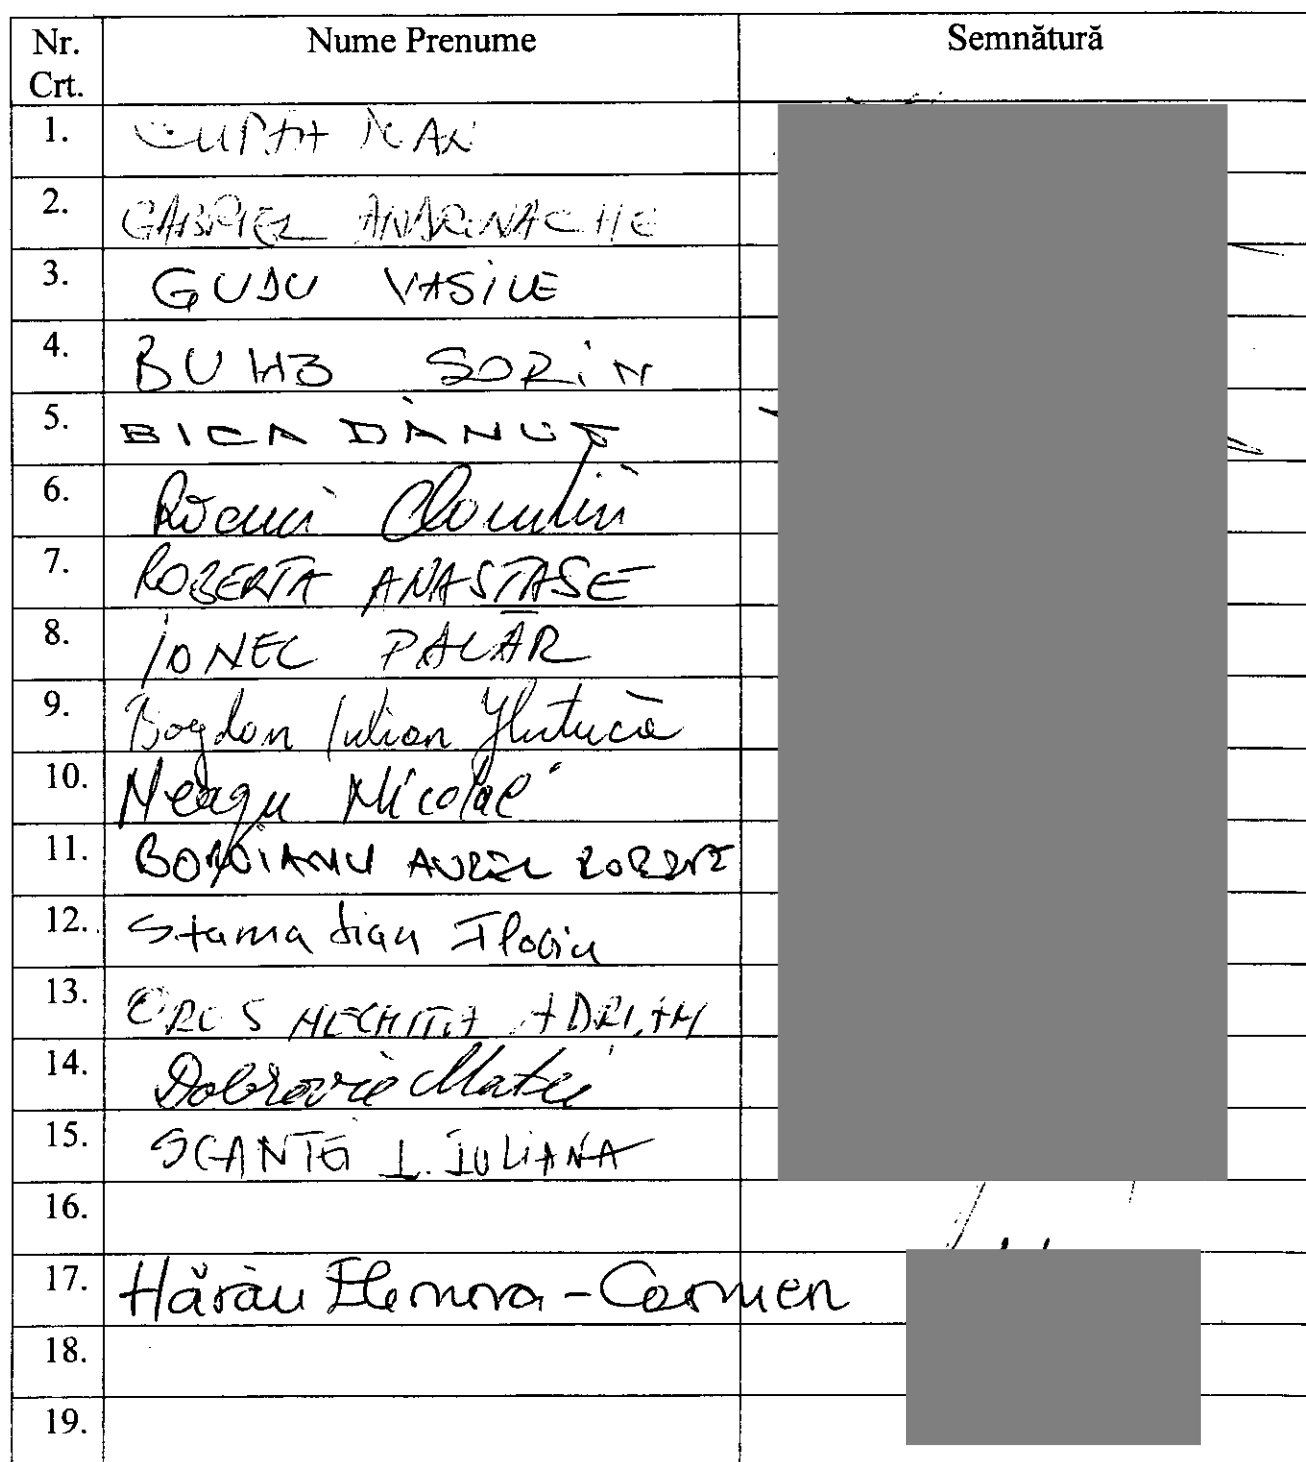 Nr. Crt. Nume Prenume Semnătură
1.
2. GABRIEL ANDRONACHE
3. GUDU VASILE
4. SORIN
5. BICA DĂNUȚ
6.
7. ROBERTA ANASTASE
8. IONEL PALĂR
9. Bogdan Iulian Huțucă
10. Neagu Nicolae
11. BOROIANU AUREL ROBERT
12. Stamatian Florin
13. OROS NECHITA ADRIAN
14. Dobrovie Matei
15. SCÂNTEI L. IULIANA
16.
17. Hărău Elenora - Carmen
18.
19.